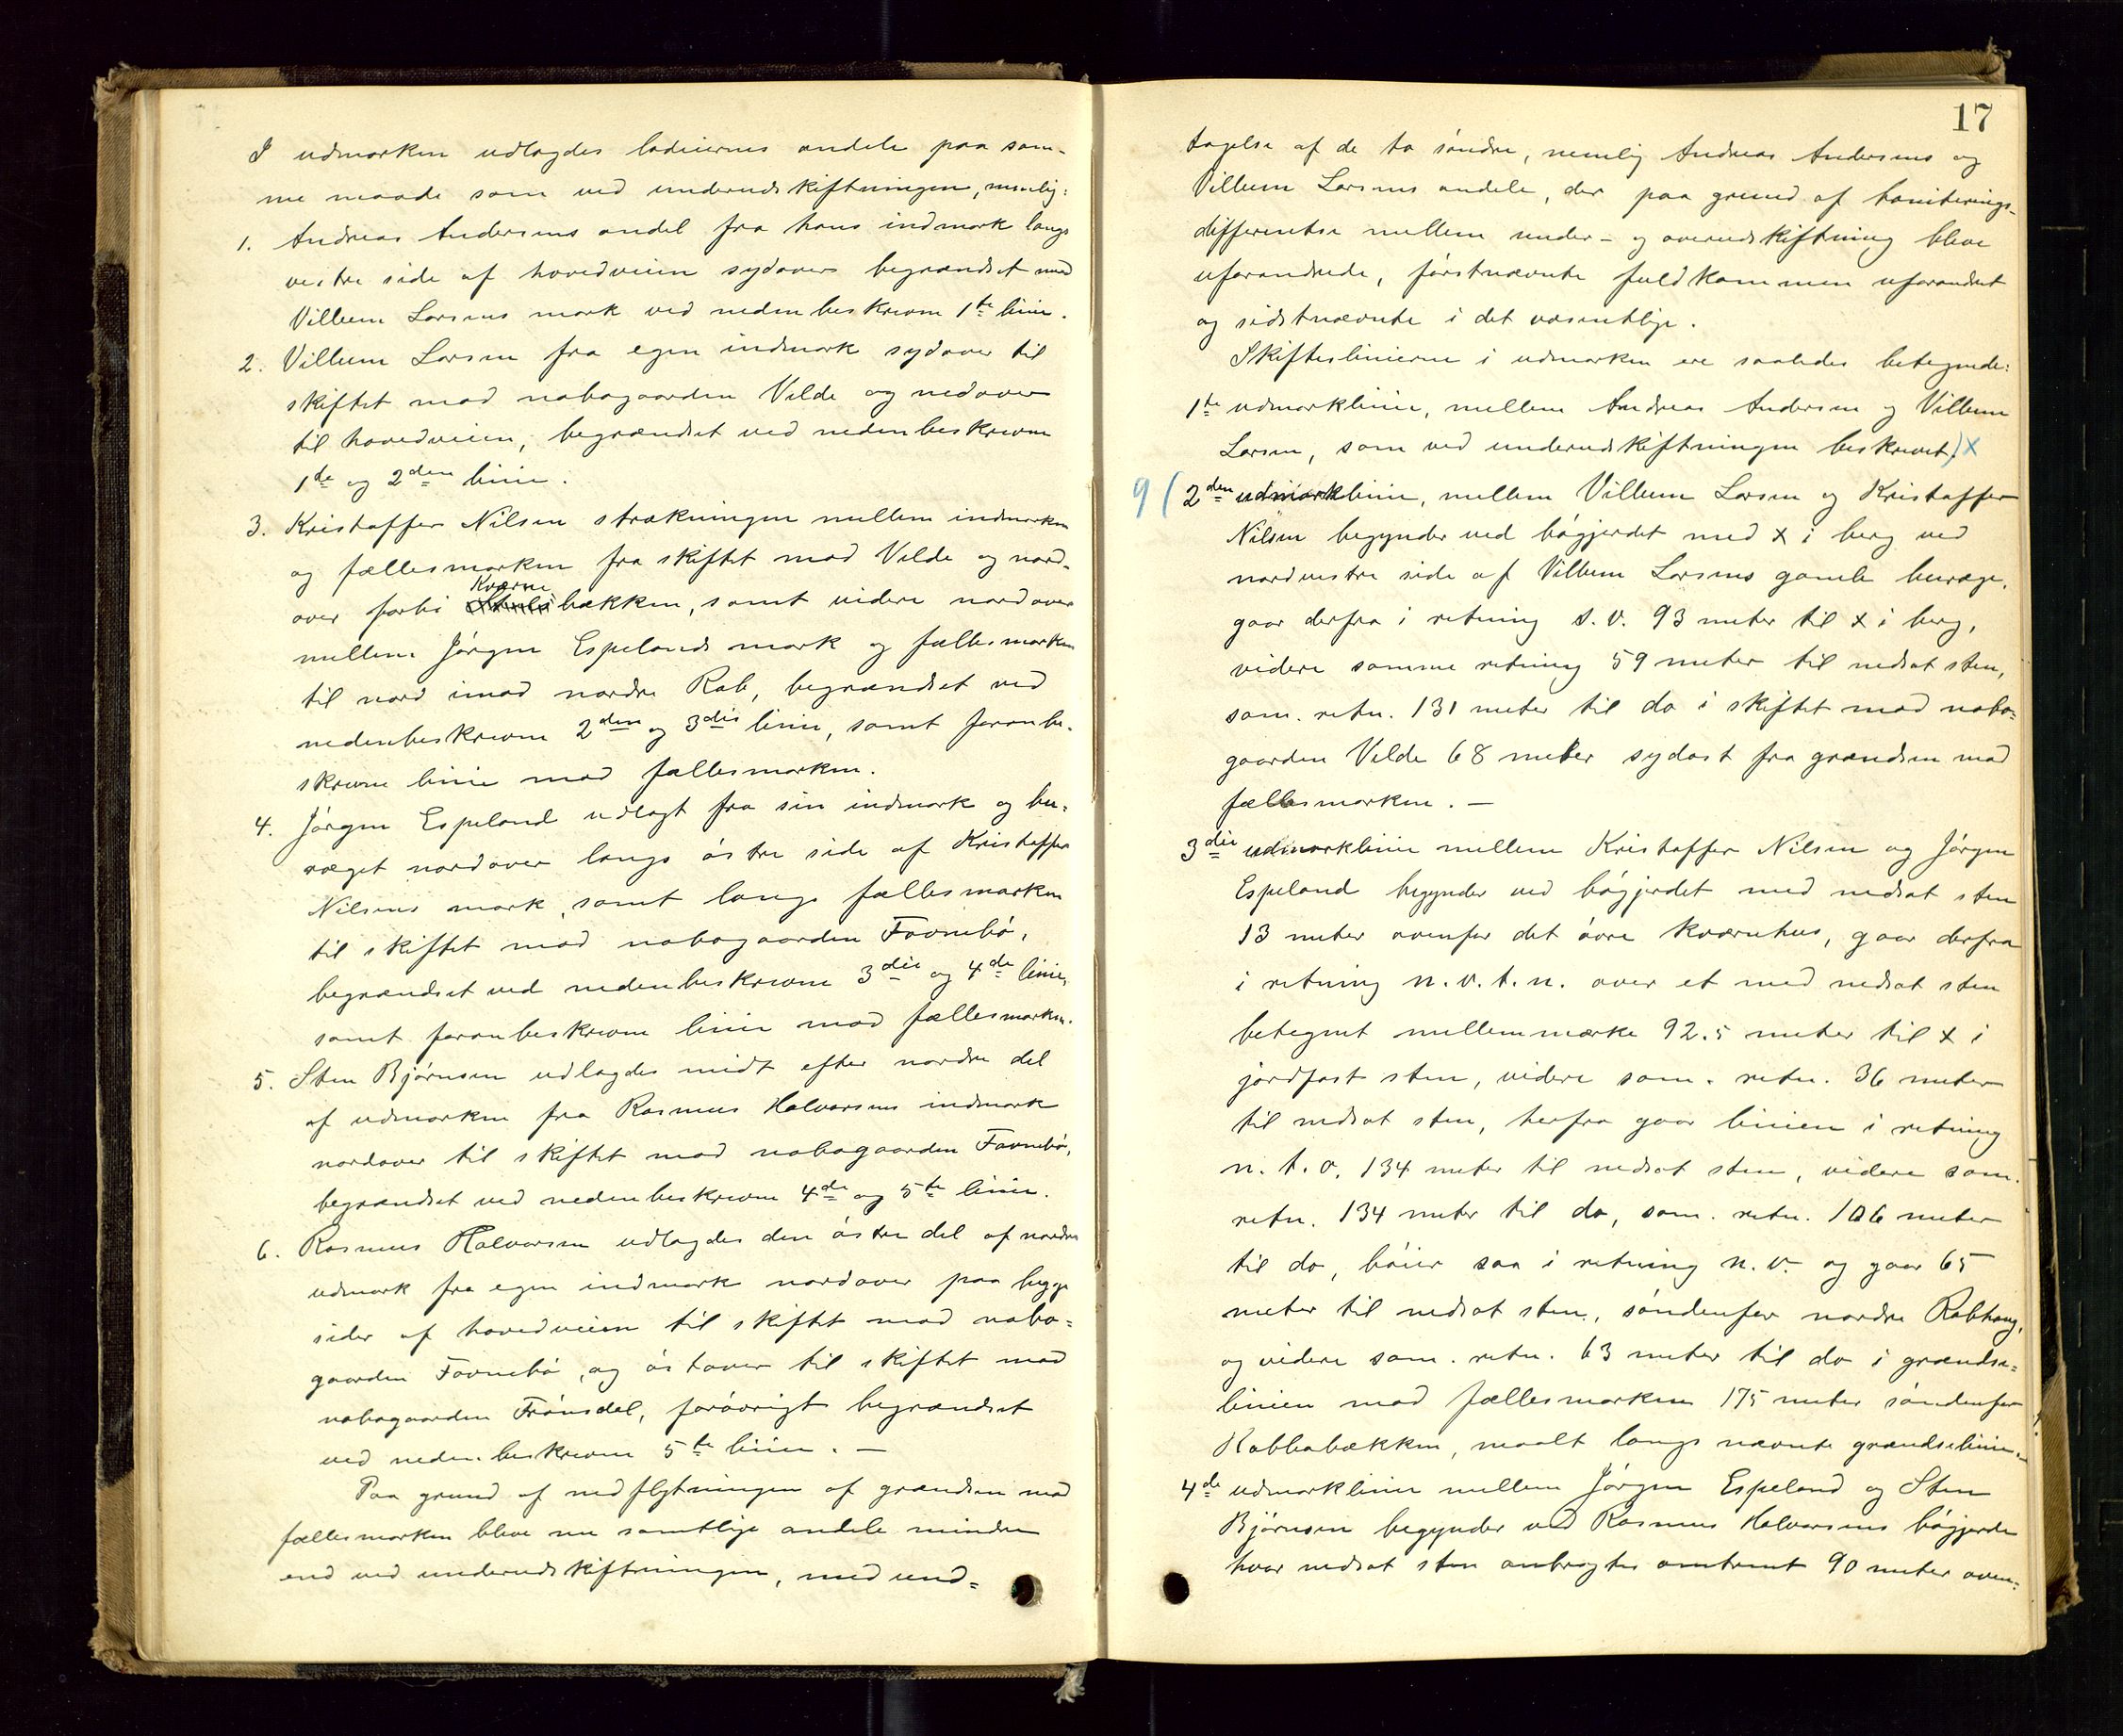 I udmarken udlagdes lodeiernes andele paa sam-
me maade som ved underudskiftningen, nemlig:
1. Andreas Andersens andel fra hans indmark langs
vestre side af hovedveien sydover begrændset mod
Villum Larsens mark ved nedenbeskrevne 1te linie.
2. Villum Larsen fra egen indmark sydover til
skiftet mod nabogaarden Velde og nedover
til hovedveien, begrændset ved nedenbeskrevne
1de og 2den linie.
3. Kristoffer Nilsen strækningen mellem indmarken
og fællesmarken fra skiftet mod Velde og nord-
over forbi Kværnebækken, samt videre nordover
mellem Jørgen Espelands mark og fællesmarken
til nord imod nordre Rab, begrændset ved
nedenbeskrevne 2den og 3die linie, samt foranbe-
skrevne linie mod fællesmarken.
4. Jørgen Espeland udlagt fra sin indmark og bu-
ræget nordover langs østre side af Kristoffer
Nilsens mark, samt langs fællesmarken
til skiftet mod nabogaarden Favnebø,
begrændset ved nedenbeskrevne 3die og 4de linie,
samt foranbeskrevne linie mod fællesmarken.
5. Sten Bjørnsen udlagdes midt efter nordre del
af udmarken fra Rasmus Halvorsens indmark
nordover til skiftet mod nabogaarden Favnebø,
begrændset ved nedenbeskrevne 4de og 5te linie.
6. Rasmus Halvorsen udlagdes den østre del af nordre
udmark fra egen indmark nordover paa begge
sider af hovedveien til skiftet mod nabo=
gaarden Favnebø, og østover til skiftet mod
nabogaarden Frønsdal, forøvrigt begrændset
ved nedenbeskrevne 5te linie. —
Paa grund af nedflytningen af grændsen mod
fællesmarken bleve nu samtlige andele mindre
end ved underudskiftningen, med und=
17
tagelse af de to søndre, nemlig Andreas Andersens og
Villum Larsens andele, der paa grund af boniterings-
differentse mellem under- og overudskiftning bleve
uforandrede, førstnævnte fuldkommen uforandret
og sidstnævnte i det væsentlige.
Skifteslinierne i udmarken ere saaledes betegnede:
1te udmarklinie, mellem Andreas Andersen og Villum
Larsen, som ved underudskiftningen beskrevet.) x
9 ( 2den udmarklinie, mellem Villum Larsen og Kristoffer
Nilsen begynder ved bøgjerdet med x i berg ved
nordvestre side af Villum Larsens gamle buræge,
gaar derfra i retning s.v. 93 meter til x i berg,
videre samme retning 59 meter til nedsat sten,
sam. retn. 131 meter til do i skiftet mod nabo=
gaarden Velde 68 meter sydost fra grændsen mod
fællesmarken. —
3die udmarklinie mellem Kristoffer Nilsen og Jørgen
Espeland begynder ved bøgjerdet med nedsat sten
13 meter ovenfor det øvre kværnhus, gaar derfra
i retning n.v.t.n. over et med nedsat sten
betegnet mellemmærke 92.5 meter til x i
jordfast sten, videre sam. retn. 36 meter
til nedsat sten, herfra gaar linien i retning
n.t.v. 134 meter til nedsat sten, videre sam.
retn. 134 meter til do, sam. retn. 106 meter
til do, bøier saa i retning n.v. og gaar 65
meter til nedsat sten, søndenfor nordre Rabhaug,
og videre sam. retn. 63 meter til do i grændse=
linien mod fællesmarken 175 meter søndenfor
Rabbabækken, maalt langs nævnte grændselinie.
4de udmarklinie mellem Jørgen Espeland og Sten
Bjørnsen begynder ved Rasmus Halvorsens bøgjerde
hvor nedsat sten anbragtes omtrent 90 meter oven=